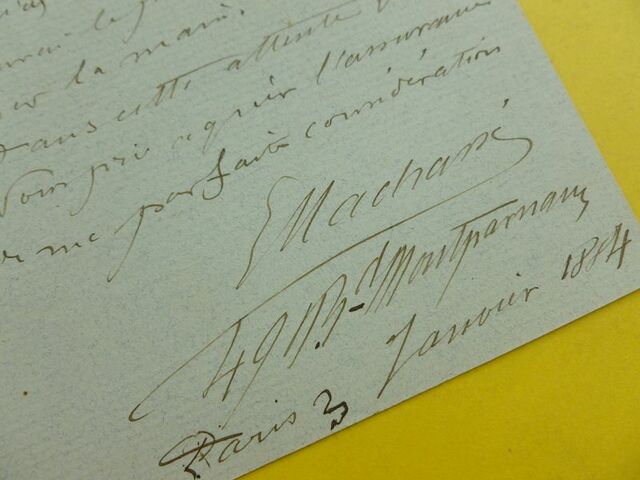 la main.
Dans cette attente
Vous prie agréer l'assurance
de ma parfaite considération
E Machard
49 B.d Montparnasse
Paris 3 Janvier 1884